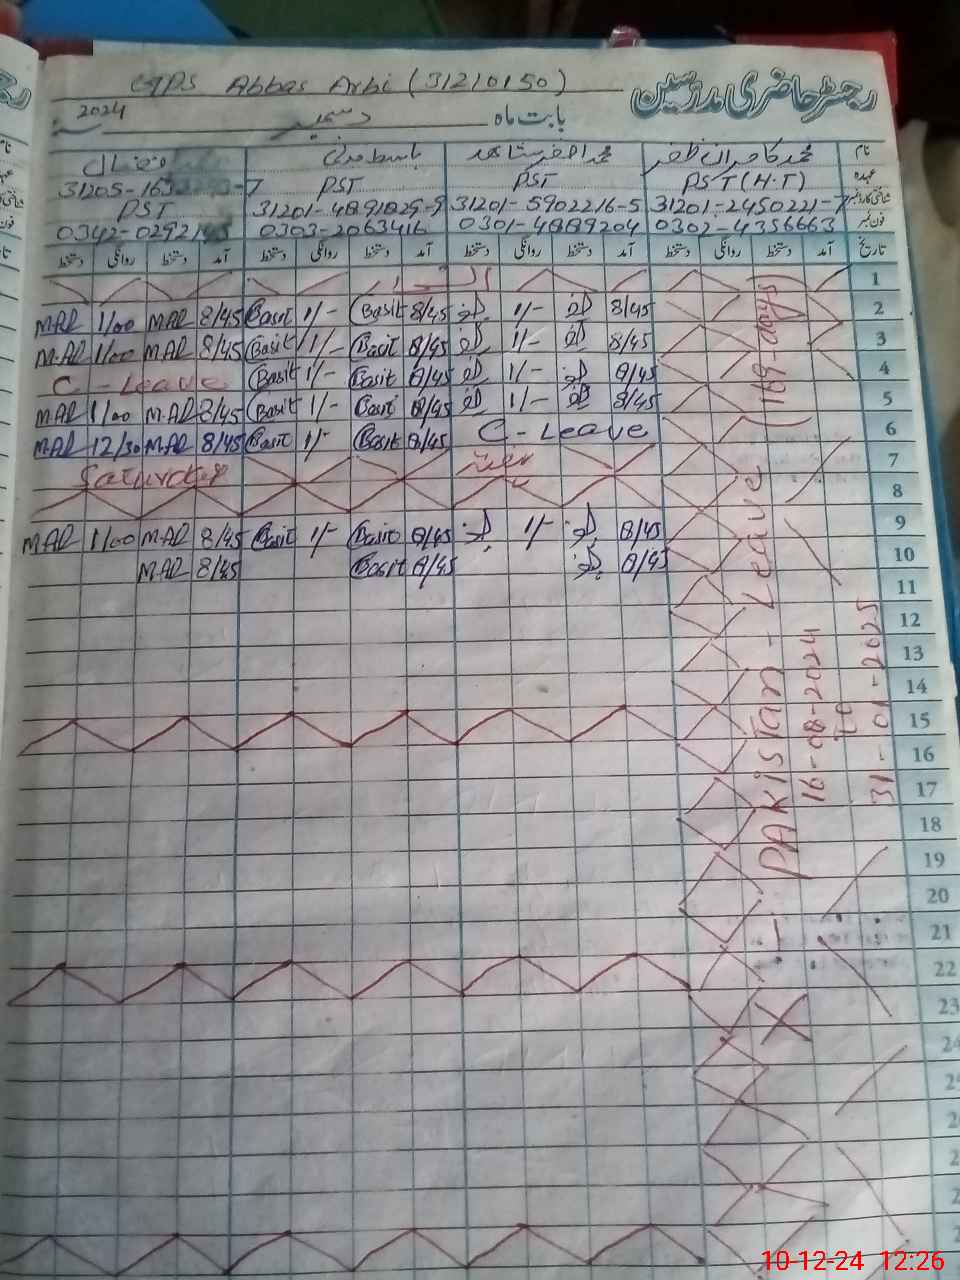 GPS Abbas Arbi (31210150)
رجسٹر حاضری مدرسین
بابت ماہ دسمبر 2024
نام محمد کامران ظفر باسط مدنی
عہدہ PST (H.T) PST PST
شناختی کارڈ نمبر 31201-2450221-7 31201-5902216-5 31201-4891829-9 31205-
PST
فون نمبر 0302-4356663 0301-4889204 0303-2063416 0342-0292
تاریخ آمد دستخط روانگی دستخط آمد دستخط روانگی دستخط آمد دستخط روانگی دستخط آمد دستخط روانگی دستخط
1
M.AR 1/00 M.AR 8/45 Basit 1/- Basit 8/45 1/- 8/45 2
M.AR 1/00 M.AR 8/45 Basit 1/- Basit 8/45 1/- 8/45 3
C - Leave Basit 1/- Basit 8/45 1/- 8/45 4
M.AR 1/00 M.AR 8/45 Basit 1/- Basit 8/45 1/- 8/45 5
M.AR 12/30 M.AR 8/45 Basit 1/- Basit 8/45 C - Leave 6
Saturday ہفتہ 7
8
M.AR 1/00 M.AR 8/45 Basit 1/- Basit 8/45 1/- 8/45 9
M.AR 8/45 Basit 8/45 8/45 10
11
12
13
14
15
16
17
18
19
20
21
22
23
PAKISTAN - Leave (169 - days)
16-08-2024
to
31-01-2025
10-12-24 12:26